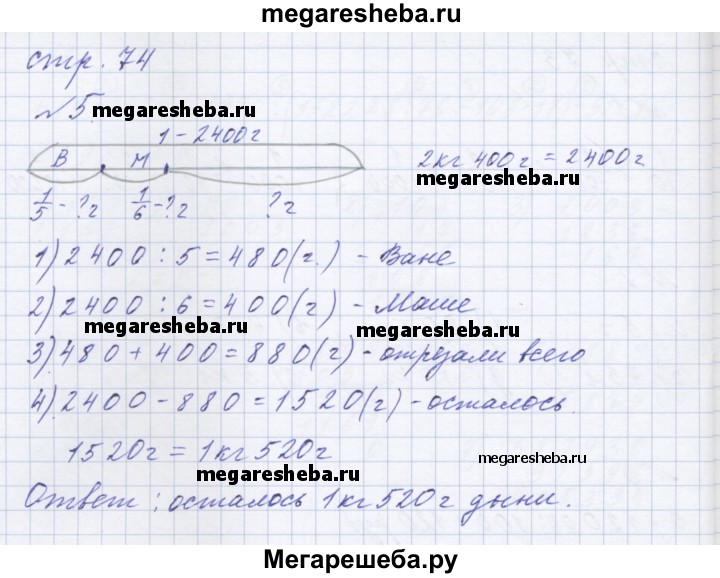 megaresheba.ru
стр. 74
№5
megaresheba.ru
1 - 2400г
В М
2кг 400г = 2400г
megaresheba.ru
1/5 - ?г 1/6 - ?г ?г
1) 2400 : 5 = 480(г.) - Ване
2) 2400 : 6 = 400(г) - Маше
megaresheba.ru megaresheba.ru
3) 480 + 400 = 880(г) - отрезали всего
4) 2400 - 880 = 1520(г) - осталось.
1520г = 1кг 520г
megaresheba.ru
megaresheba.ru
Ответ: осталось 1кг 520г дыни.
Мегарешеба.ру